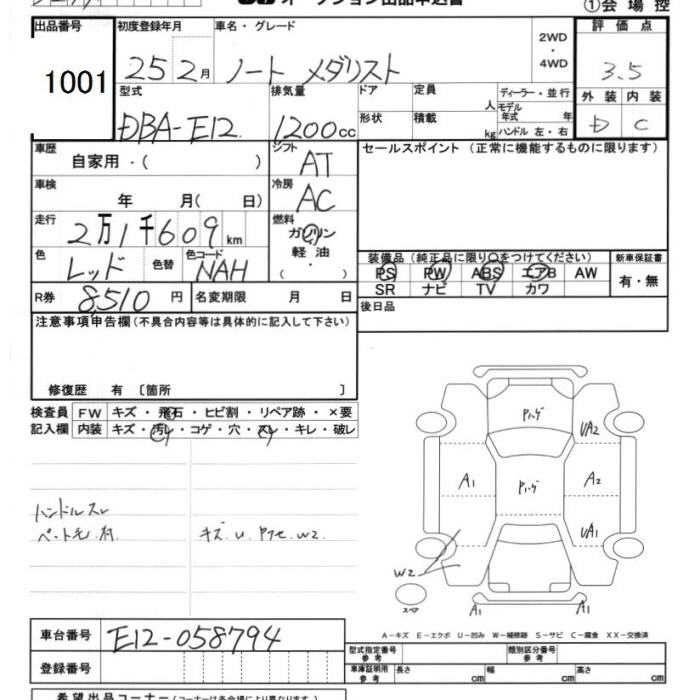 オークション出品申込書
①会場控
出品番号 初度登録年月 車名・グレード 2WD・4WD 評価点
1001 25 2月 ノート メダリスト 3.5
型式 排気量 ドア 定員 人 ディーラー・並行 外装 内装
DBA-E12 1200cc 形状 積載 kg モデル年式 年 ハンドル 左・右 D C
車歴 自家用・( ) シフト AT セールスポイント(正常に機能するものに限ります)
車検 年 月( 日) 冷房 AC
走行 2万1千609km 燃料 ガソリン 軽油 ( ・ )
色 レッド 色替 色コード NAH
装備品(純正品に限り○をつけてください) 新車保証書
PS PW ABS エアB AW 有・無
SR ナビ TV カワ
R券 8,510円 名変期限 月 日 後日品
注意事項申告欄(不具合内容等は具体的に記入して下さい)
修復歴 有〔箇所 〕
検査員 FW キズ・飛石・ヒビ割・リペア跡・×要
記入欄 内装 キズ・汚レ・コゲ・穴・スレ・キレ・破レ
Pハゲ
UA2
A1 Pハゲ A2
ハンドルスレ
UA1
キズ.U. W2
W2
スペア A1 A1
A-キズ E-エクボ U-凹み W-補修跡 S-サビ C-腐食 XX-交換済
車台番号 E12-058794
型式指定番号 参考 類別区分番号 参考
登録番号 車庫証明用 参考 長さ cm 幅 cm 高さ cm
希望出品コーナー(コーナーは各会場により異なります)